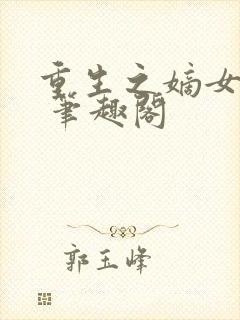 重生之嫡女
笔趣阁
郭玉峰